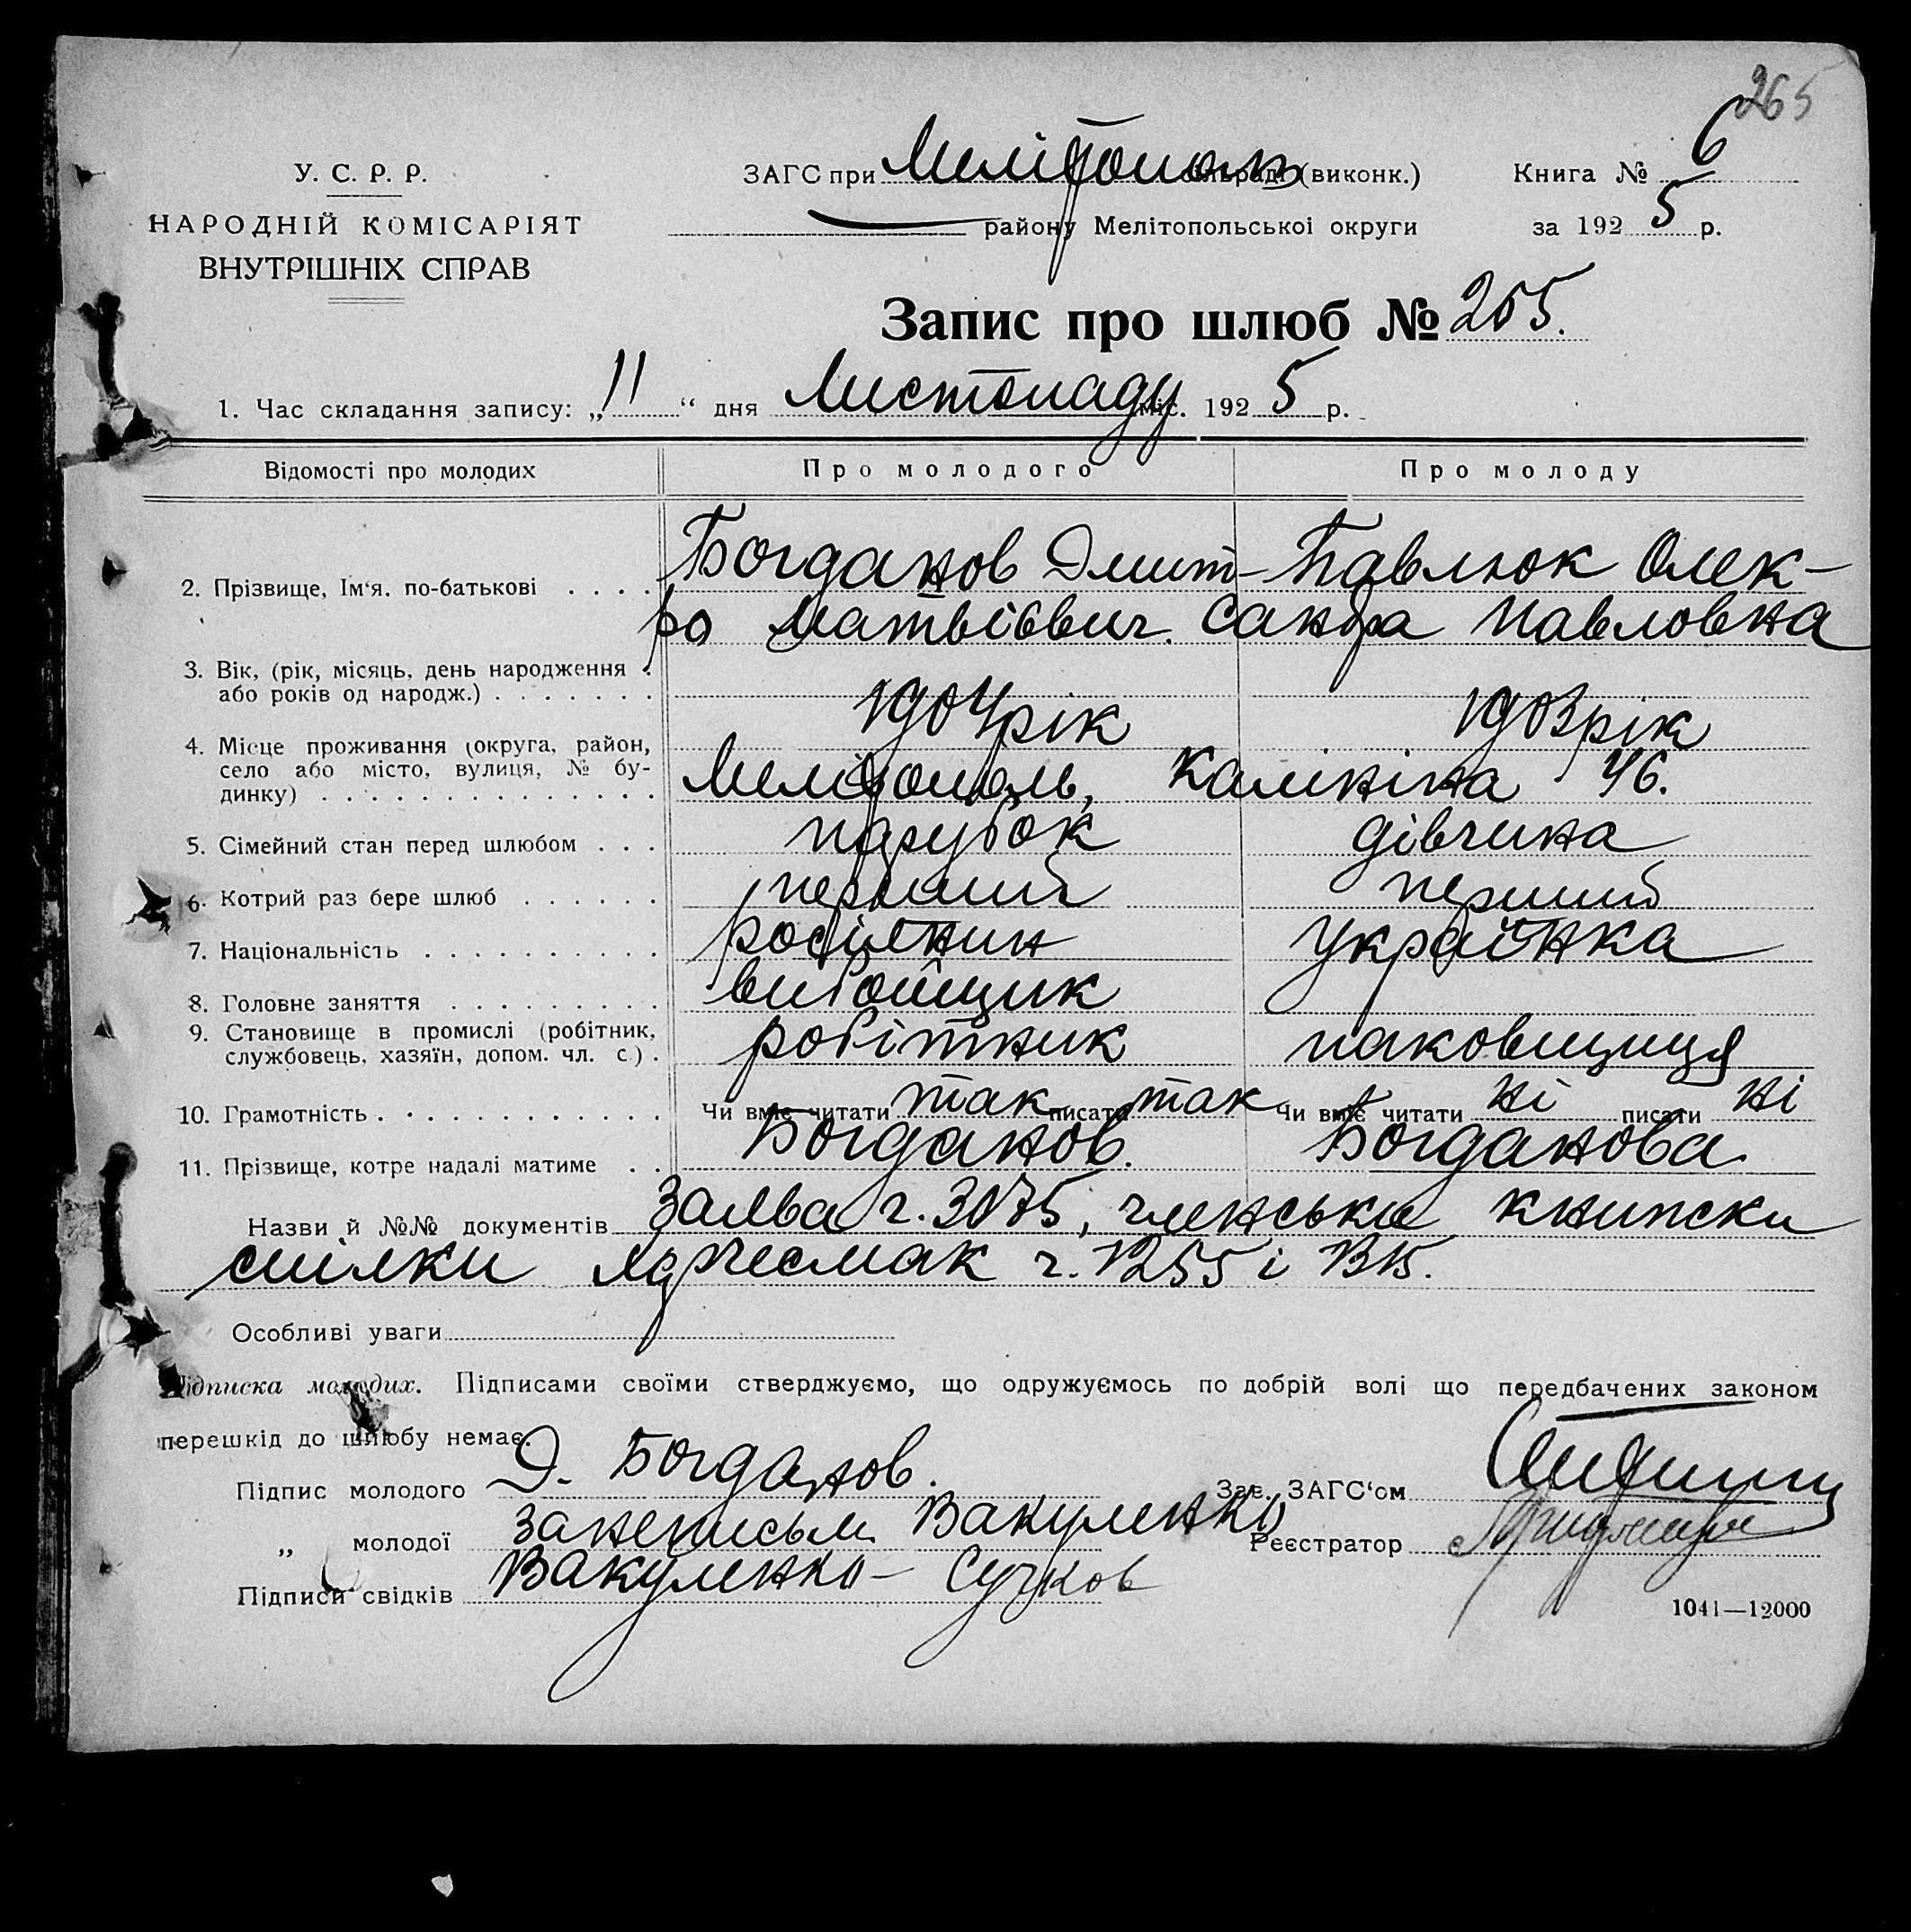 265
У. С. Р. Р.
НАРОДНІЙ КОМІСАРІЯТ
ВНУТРІШНІХ СПРАВ
ЗАГС при Мелітополь сільраді (виконк.)
району Мелітопольської округи
Книга № 6
за 1925 р.
Запис про шлюб № 265.
1. Час складання запису: „11“ дня Листопаду міс. 1925 р.
Відомості про молодих Про молодого Про молоду
2. Прізвище, Ім'я, по-батькові . . . . Богданов Дмит- Павлюк Олек-
ро Матвієвич. сандра Павловна
3. Вік, (рік, місяць, день народження
або років од народж.) . . . . . . . 1904 рік 1903 рік
4. Місце проживання (округа, район,
село або місто, вулиця, № бу-
динку) . . . . . . . . . . . . . . Мелітополь, Калініна 46.
5. Сімейний стан перед шлюбом . . . парубок дівчина
6. Котрий раз бере шлюб . . . . . . перший перший
7. Національність . . . . . . . . . . росіянин українка
8. Головне заняття . . . . . . . . . вибойщик
9. Становище в промислі (робітник,
службовець, хазяїн, допом. чл. с.) . робітник паковщиця
10. Грамотність . . . . . . . . . . . Чи вміє читати так писати так Чи вміє читати ні писати ні
11. Прізвище, котре надалі матиме . . Богданов. Богданова.
Назви й №№ документів заява ч. 3075, членські книжски
спілки ч. 1255 і
Особливі уваги
Підписка молодих. Підписами своїми стверджуємо, що одружуємось по добрій волі що передбачених законом
перешкід до шлюбу немає.
Підпис молодого Д. Богданов.
Зав. ЗАГС'ом
„ молодої Вакуленко
Реєстратор
Підписи свідків Вакуленко - Сучков
1041—12000